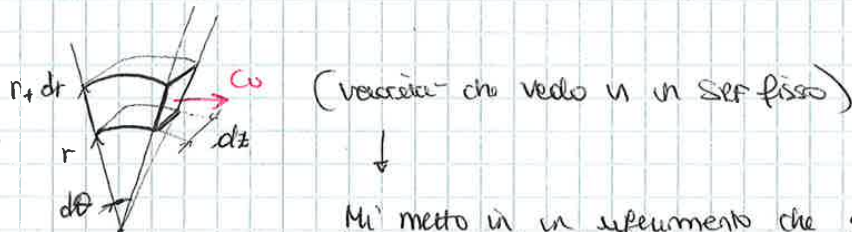 r+dr
Cu (velocità che vedo in un SRF fisso)
r
dz
dθ
Mi metto in un riferimento che